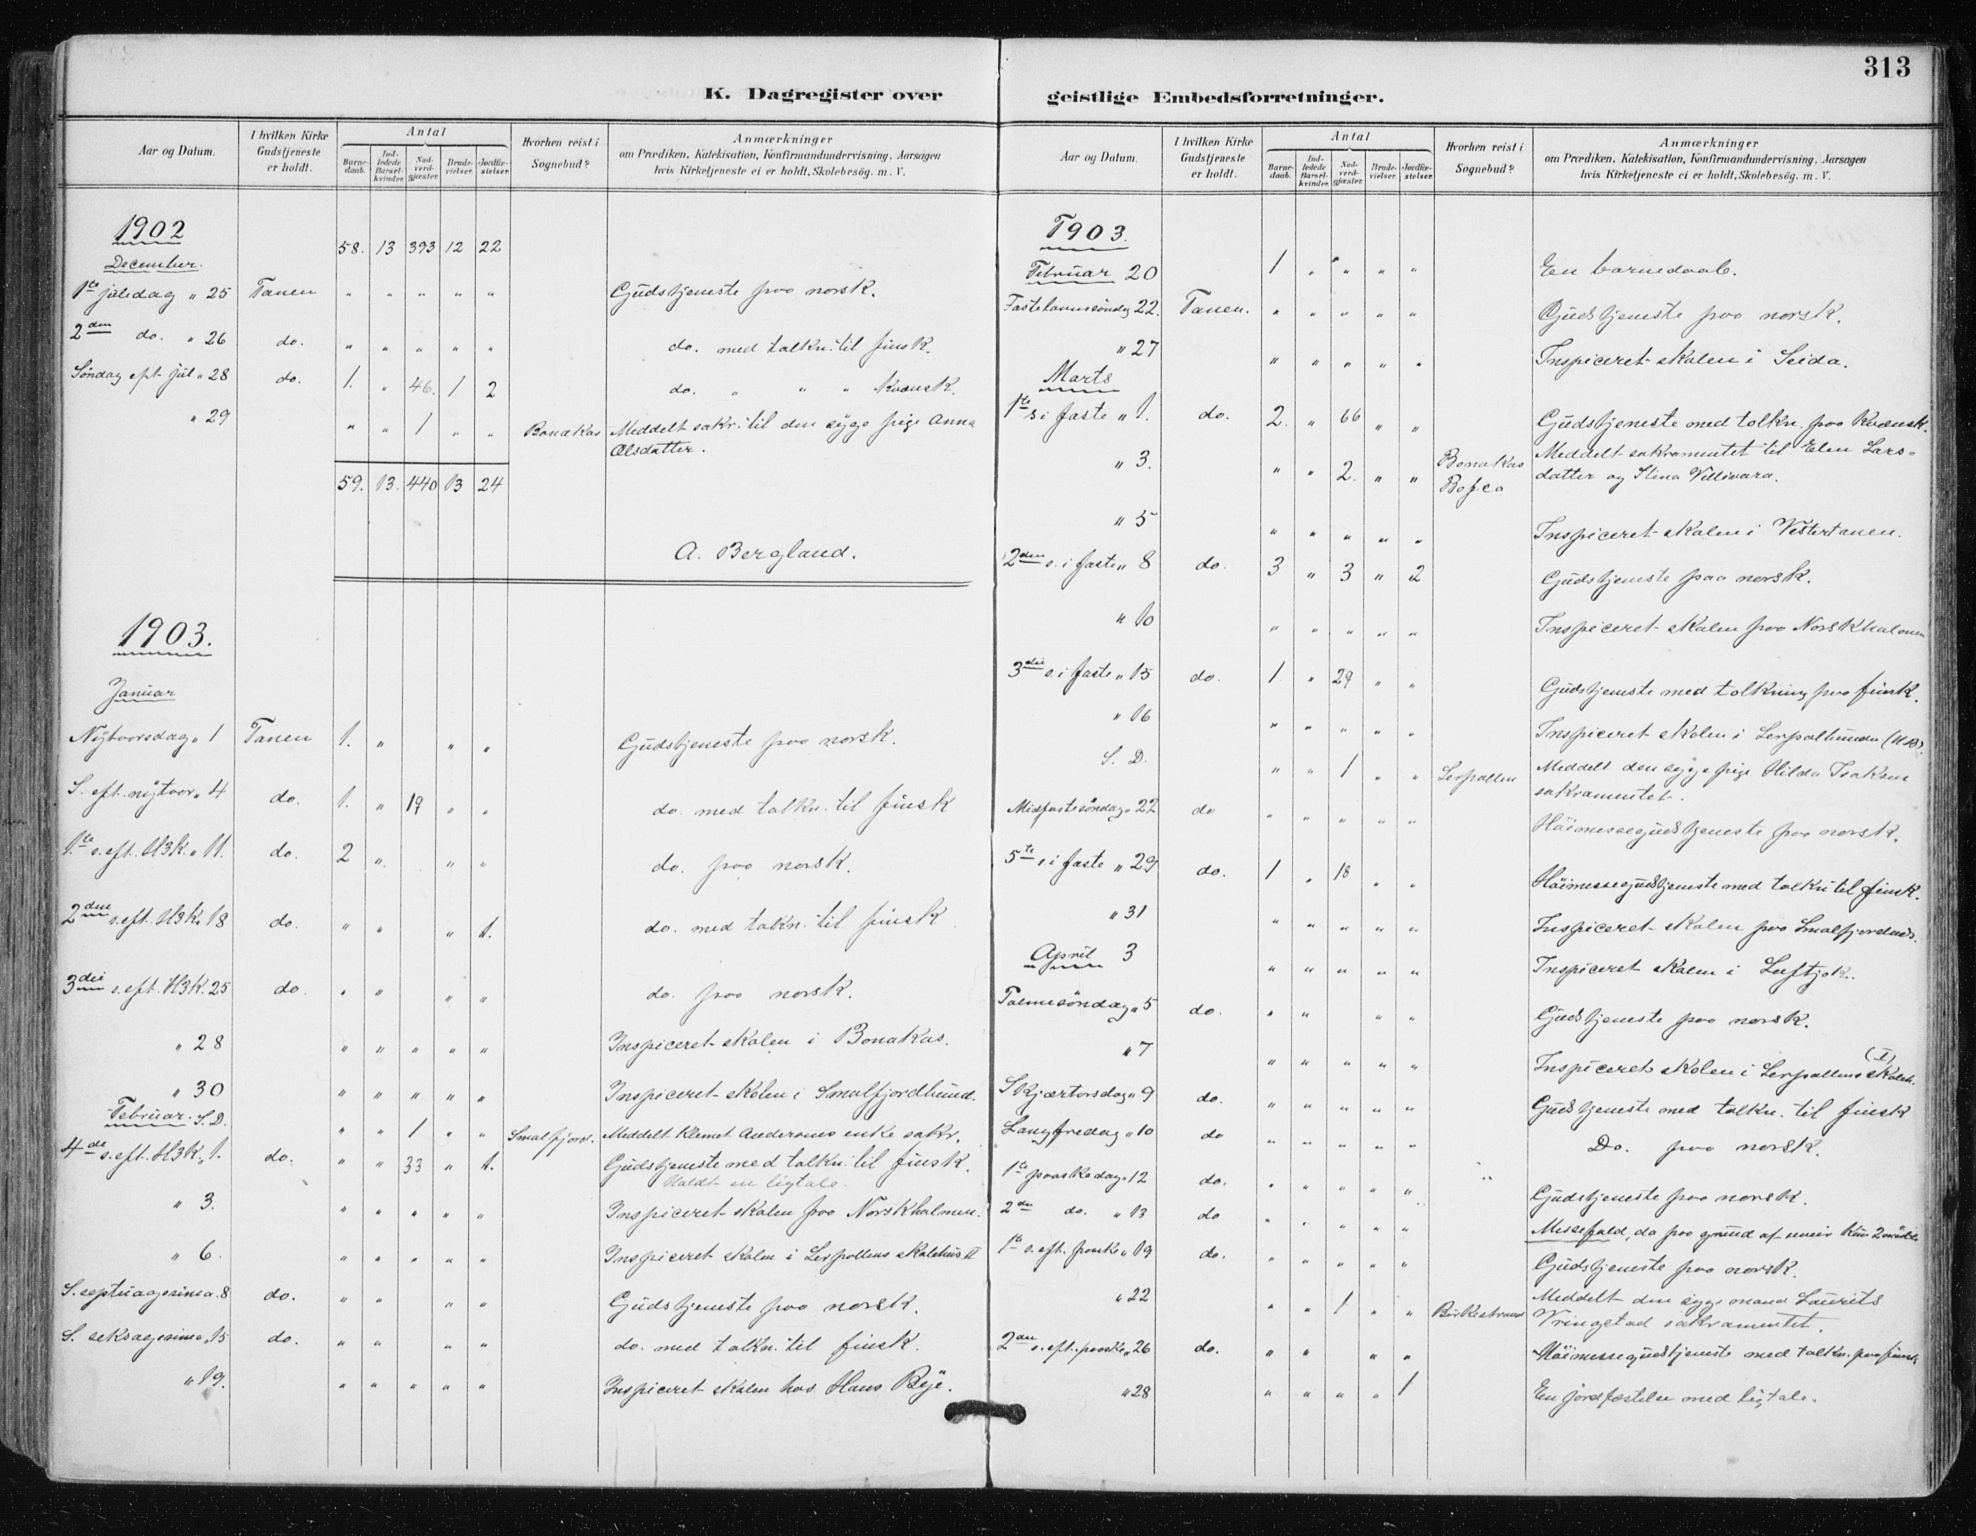 313
K. Dagregister over geistlige Embedsforretninger.
Aar og Datum. | I hvilken Kirke Gudstjeneste er holdt. | Antal | Barne-daab. | Ind-ledede Barsel-kvinder. | Nad-verd-gjester. | Brude-vielser. | Jordfæ-stelser. | Hvorhen reist i Sognebud? | Anmærkninger om Prædiken, Katekisation, Konfirmandundervisning, Aarsagen hvis Kirketjeneste ei er holdt, Skolebesög. m. V.
1902
December. 58. 13 393 12 22
1te juledag " 25 Tanen " " " " " Gudstjeneste paa norsk.
2den do. " 26 do. " " " " " do. med tolkn. til finsk.
Søndag eft. jul " 28 do. 1. " 46. 1 2 do. " " " kvænsk.
" 29 " " 1 " " Bonakas Meddelt sakr. til den syge pige Anna
Olsdatter.
59. 13. 440 13 24
A. Bergland.
1903.
Januar
Nytaarsdag " 1 Tanen 1. " " " Gudstjeneste paa norsk.
S. eft. nytaar " 4 do. 1. " 19 " " do. med tolkn. til finsk
1te s. eft. H3K. " 11. do. 2 " " " do. paa norsk.
2den s. eft. H3K. 18 do. " " " 1. do. med tolkn. til finsk
3die s. eft. H3K. 25 do. " " " " do. paa norsk.
" 28 " " " " " Inspiceret skolen i Bonakas.
" 30 " " " " " Inspiceret skolen i Smalfjordbund.
Februar. S.D. " " 1 " " Smalfjord. Meddelt Klemet Andersens enke sakr.
4de s. eft. H3K. " 1. do. " " 33 " 1. Gudstjeneste med tolkn. til finsk.
Holdt en ligtale.
" 3. " " " " " Inspiceret skolen paa Norskholmen.
" 6. " " " " " Inspiceret skolen i Lerpollens skolehus II
S. septuagesima. 8 do. " " " " Gudstjeneste paa norsk.
S. seksagesima " 15 do. " " " " do. med tolkn. til finsk.
" 19. " " " " " Inspiceret skolen hos Hans Bye.
Aar og Datum. | I hvilken Kirke Gudstjeneste er holdt. | Antal | Barne-daab. | Ind-ledede Barsel-kvinder. | Nad-verd-gjester. | Brude-vielser. | Jordfæ-stelser. | Hvorhen reist i Sognebud? | Anmærkninger om Prædiken, Katekisation, Konfirmandundervisning, Aarsagen hvis Kirketjeneste ei er holdt, Skolebesög. m. V.
1903.
Februar 20 1 " " " " En barnedaab.
Fastelavnssøndag 22. Tanen. " " " " " Gudstjeneste paa norsk.
" 27 " " " " " Inspiceret skolen i Seida.
Marts
1te s. i faste " 1. do. 2. " 66 " " Gudstjeneste med tolkn. paa kvænsk.
" 3. " " 2. " " Bonakas Meddelt sakramentet til Elen Lars-
datter og Stina Villivara.
" 5 " " " " " Inspiceret skolen i Vestertanen.
2den s. i faste " 8 do. 3 " 3 " 2 Gudstjeneste paa norsk.
" 10 " " " " " Inspiceret skolen paa Norskholmen
3die s. i faste " 15 do. 1. " 29 " " Gudstjeneste med tolkning paa finsk.
" 16 " " " " " Inspiceret skolen i
S. D. " " 1 " " Lerpollen Meddelt den syge pige Hilda Isaksen
sakramentet.
Midfastesøndag " 22 do " " " " " Höimessegudstjeneste paa norsk.
5te s. i faste " 29 do. 1 " 18 " " Höimessegudstjeneste med tolkn. til finsk.
" 31 " " " " " Inspiceret skolen paa Smalfjordnes.
April 3 " " " " " Inspiceret skolen i Luftjok.
Palmesöndag " 5 do. " " " " Gudstjeneste paa norsk.
" 7 " " " " " Inspiceret skolen i Lerpollens skoleh. (I)
Skjærtorsdag " 9 do. " " " " " Gudstjeneste med tolkn. til finsk
Langfredag " 10 do " " " " " Do. paa norsk.
1te paaskedag " 12 do. " " " " " Gudstjeneste paa norsk.
2den do. " 13 do " " " " " Messefald, da paa grund af uveir kun 2
1te s. eft. paaske " 19 do. " " " " " Gudstjeneste paa norsk.
" 22 " " 1 " " Birkestrand Meddelt den syge mand Laurits
Vringstad sakramentet.
2den s. eft. paaske " 26 do. " " " " Höimessegudstjeneste med tolkn. paa finsk
" 28 " " " " 1 En jordfæstelse med ligtale.